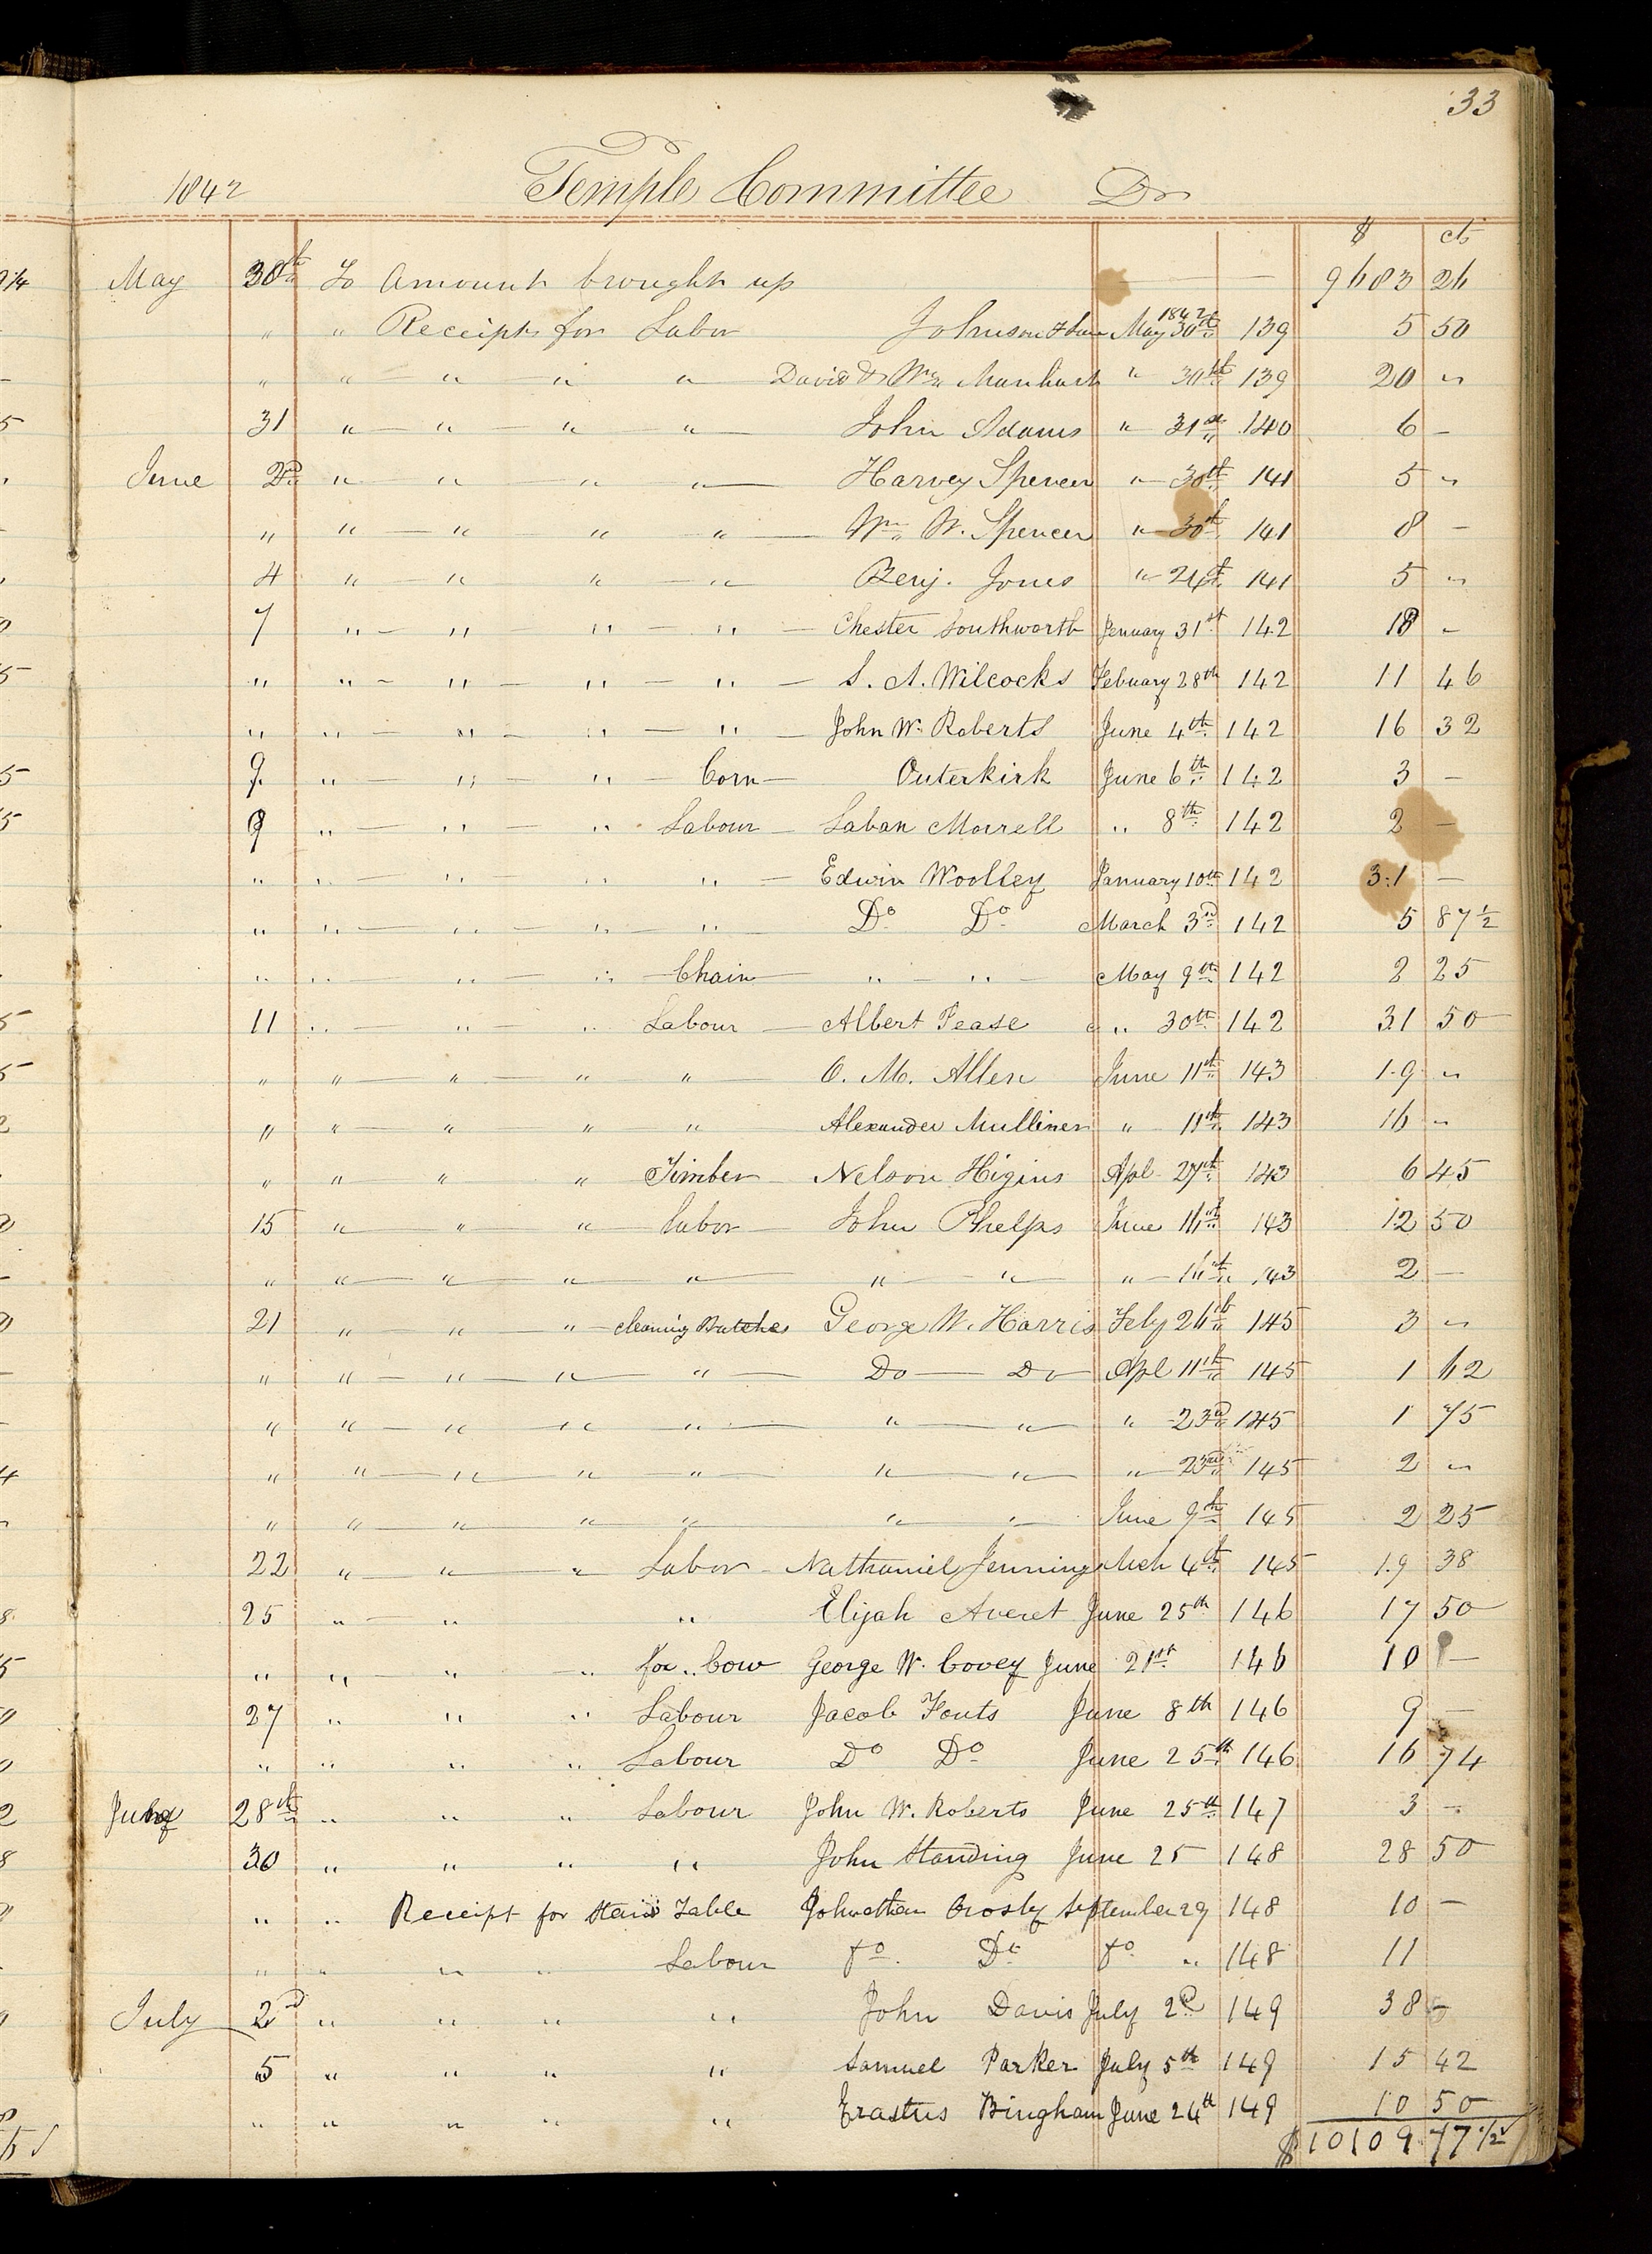 33
1842 Temple Committee Dr
$ cts
May 30th To Amount brought up — — 9683 26
" " Receipts for Labor Johnson & Law 1842 May 30th 139 5 50
" " " " " David & Wm Manhart " 30th 139 20 "
31 " " " " John Adams " 31st 140 6 —
June 2d " " " " Harvey Spencer " 30th 141 5 "
" " " " " Wm W. Spencer " 30th 141 8 —
4 " " " " Benj. Jones " 24th 141 5 "
7 " " " " Chester Southworth Jenuary 31st 142 18 —
" " " " " S. A. Wilcocks Febuary 28th 142 11 46
" " " " " John W. Roberts June 4th 142 16 32
9 " " " Corn Outerkirk June 6th 142 3 —
9 " " " Labour Laban Morrell " 8th 142 2 —
" " " " " Edwin Woolley January 10th 142 31 —
" " " " " Do Do March 3rd 142 5 87 1/2
" " " " Chain " " May 9th 142 2 25
11 " " " Labour Albert Pease " 30th 142 31 50
" " " " " O. M. Allen June 11th 143 19 "
" " " " " Alexander Mulliner " 11th 143 16 "
" " " " Timber Nelson Higins Apl 27th 143 6 45
15 " " " labor John Phelps June 16th 143 12 50
" " " " " " " " 16th 143 2 —
21 " " " cleaning Watches George W. Harris Feby 26th 145 3 "
" " " " " Do Do Apl 11th 145 1 62
" " " " " " " " 23d 145 1 75
" " " " " " " " 23rd 145 2 "
" " " " " " " June 9th 145 2 25
22 " " " Labor Nathaniel Jennings Mch 4th 145 19 38
25 " " " Elijah Averet June 25th 146 17 50
" " " " for " Cow George W. Covey June 21st 146 10 —
27 " " " Labour Jacob Fouts June 8th 146 9 —
" " " " Labour Do Do June 25th 146 16 74
July 28th " " " Labour John W. Roberts June 25th 147 3 —
30 " " " " John Standing June 25 148 28 50
" " Receipt for Stand Table Johnathan Crosby September 29 148 10 —
" " " " Labour Do Do Do " 148 11
July 2d " " " " John Davis July 2d 149 38 —
5 " " " " Samuel Parker July 5th 149 15 42
" " " " " Erastus Bingham June 24th 149 10 50
$10109.77 1/2